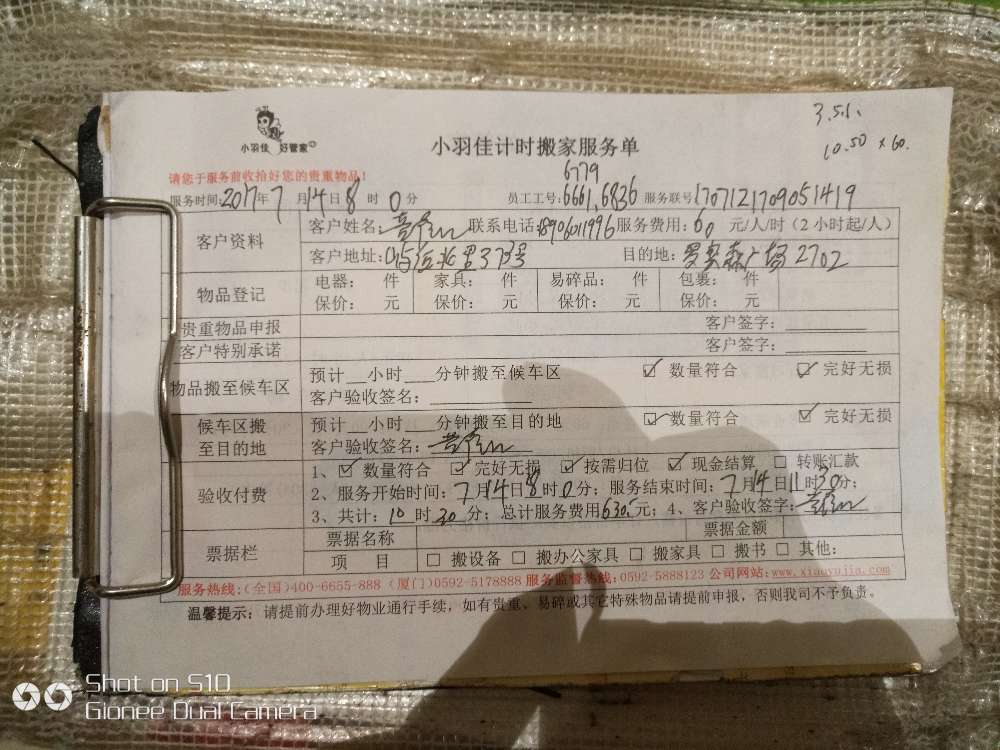 3.5小
10.50 × 60.
小羽佳 好管家
小羽佳计时搬家服务单
请您于服务前收拾好您的贵重物品!
6779
服务时间:2017年7月14日8时0分 员工工号:6661,6836 服务联号:170712170905 1419
客户资料
客户姓名: 联系电话:18906011996 服务费用:60元/人/时(2小时起/人)
客户地址: 373号 目的地: 广场2702
物品登记
电器: 件 家具: 件 易碎品: 件 包裹: 件
保价: 元 保价: 元 保价: 元 保价: 元
贵重物品申报 客户签字:
客户特别承诺 客户签字:
物品搬至候车区
预计__小时___分钟搬至候车区 ☑ 数量符合 ☑ 完好无损
客户验收签名:
候车区搬至目的地
预计__小时___分钟搬至目的地 ☑ 数量符合 ☑ 完好无损
客户验收签名:
验收付费
1、☑ 数量符合 ☑ 完好无损 ☑ 按需归位 ☑ 现金结算 □ 转账汇款
2、服务开始时间:7月14日8时0分;服务结束时间:7月14日11时30分;
3、共计:10时30分;总计服务费用630元;4、客户验收签字:
票据栏
票据名称 票据金额
项 目 □ 搬设备 □ 搬办公家具 □ 搬家具 □ 搬书 □ 其他:
服务热线:(全国)400-6655-888 (厦门)0592-5178888 服务监督热线:0592-5888123 公司网站:www.xiaoyujia.com
温馨提示:请提前办理好物业通行手续,如有贵重、易碎或其它特殊物品请提前申报,否则我司不予负责。
Shot on S10
Gionee Dual Camera